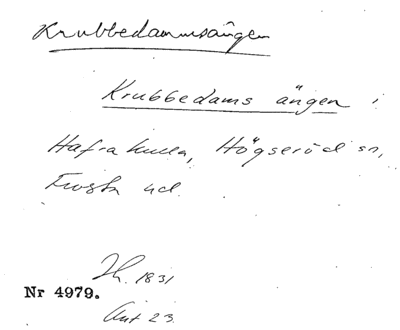 Krubbedammsängen
Krubbedams ängen i
Hafrakulla, Högseröd sn,
Frosta hd.
Lh. 1831
Nr 4979.
Akt 23.